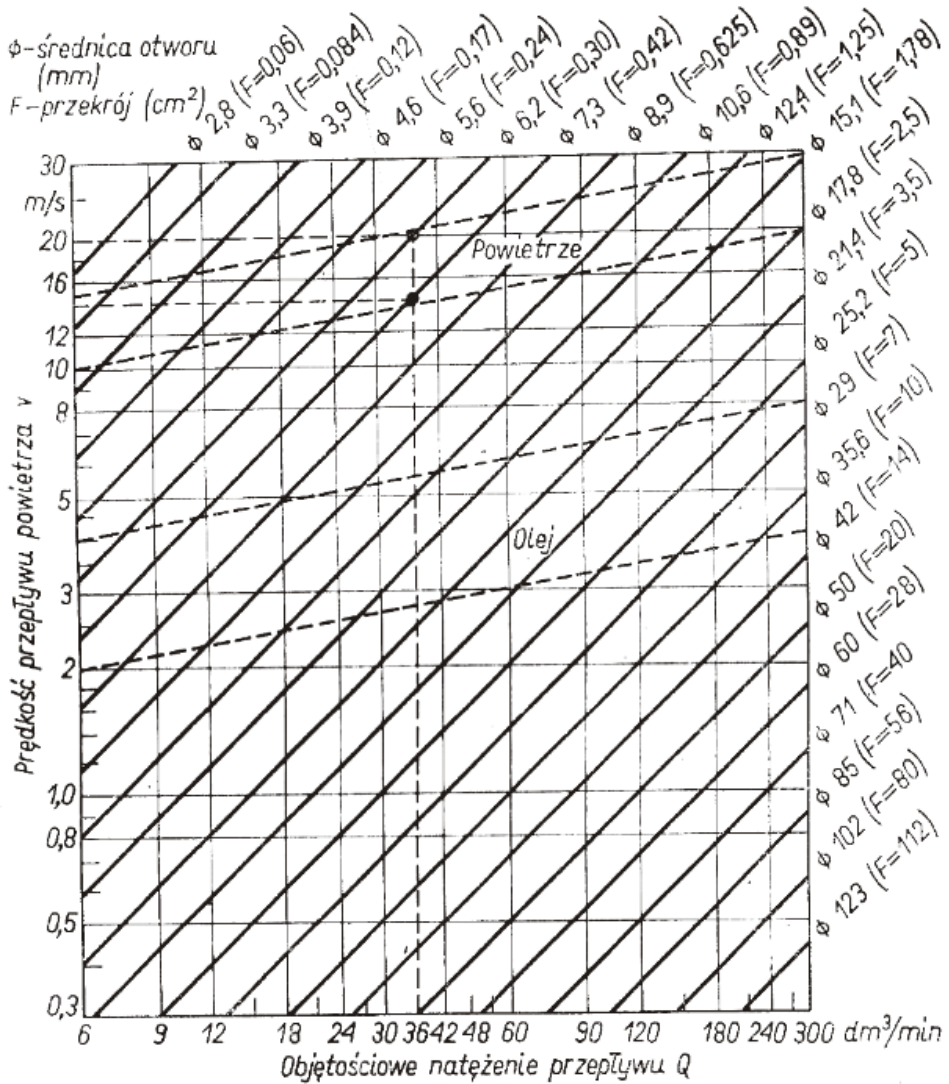 φ-średnica otworu
(mm)
F-przekrój (cm²)
φ 2,8 (F=0,06)
φ 3,3 (F=0,084)
φ 3,9 (F=0,12)
φ 4,6 (F=0,17)
φ 5,6 (F=0,24)
φ 6,2 (F=0,30)
φ 7,3 (F=0,42)
φ 8,9 (F=0,625)
φ 10,6 (F=0,89)
φ 12,4 (F=1,25)
φ 15,1 (F=1,78)
φ 17,8 (F=2,5)
φ 21,4 (F=3,5)
φ 25,2 (F=5)
φ 29 (F=7)
φ 35,6 (F=10)
φ 42 (F=14)
φ 50 (F=20)
φ 60 (F=28)
φ 71 (F=40
φ 85 (F=56)
φ 102 (F=80)
φ 123 (F=112)
30
m/s
20
16
12
10
8
5
3
2
1,0
0,8
0,5
0,3
Prędkość przepływu powietrza v
Powietrze
Olej
6 9 12 19 24 30 36 42 48 60 90 120 180 240 300 dm³/min
Objętościowe natężenie przepływu Q